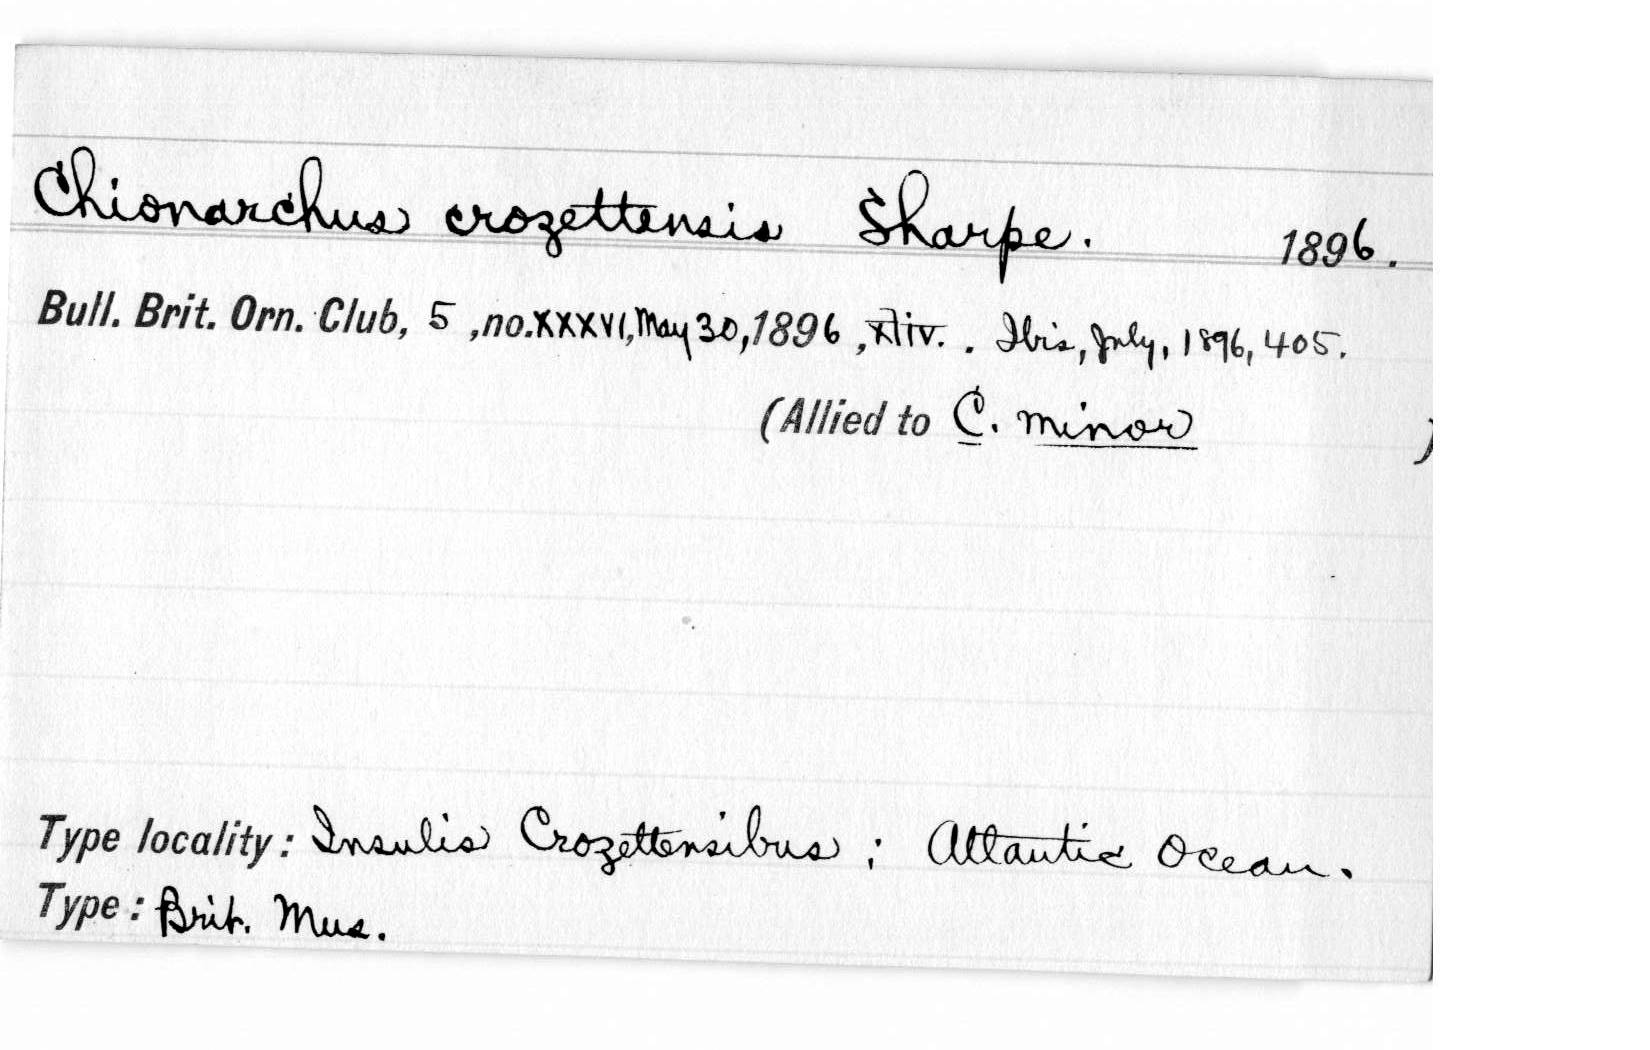 Chionarchus crozettensis Sharpe. 1896.
Bull. Brit. Orn. Club, 5 ,no.XXXVI,May 30,1896 ,xliv. . Ibis, July, 1896, 405.
(Allied to C. minor )
Type locality: Insulis Crozettensibus ; Atlantic Ocean.
Type: Brit. Mus.